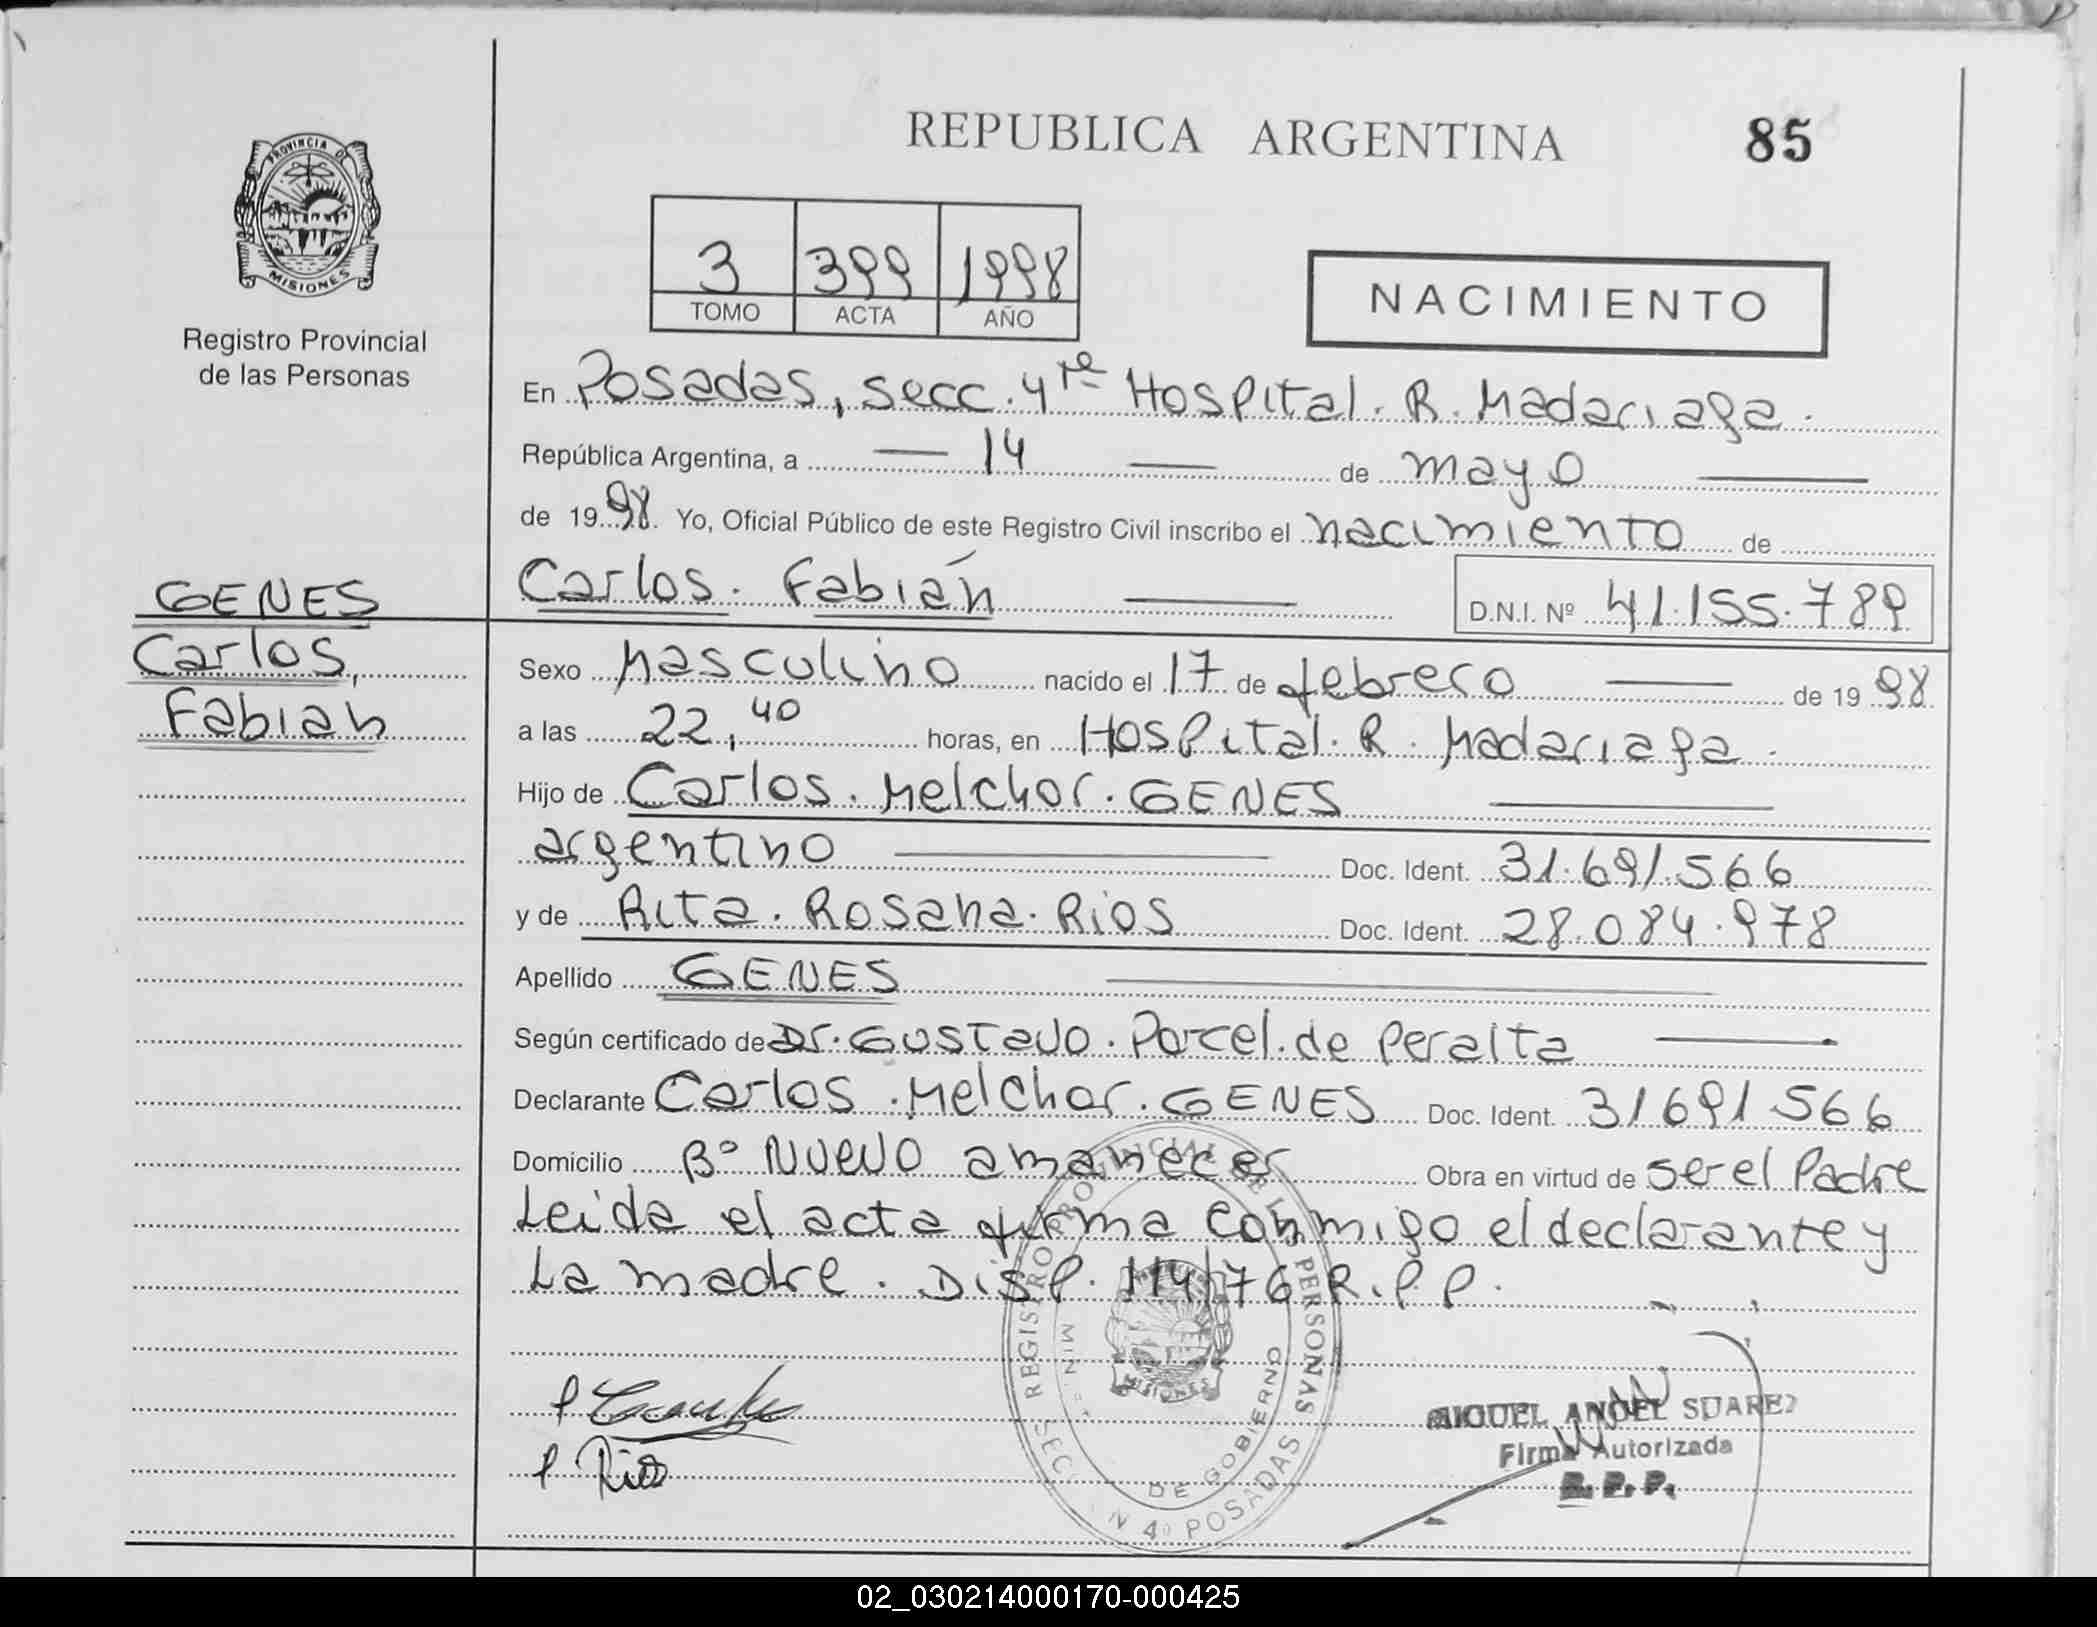 REPUBLICA ARGENTINA
85
PROVINCIA DE
MISIONES
Registro Provincial
de las Personas
3 399 1998
TOMO ACTA AÑO
NACIMIENTO
En Posadas, secc. 4ta Hospital. R. Madariaga.
República Argentina, a — 14 — de mayo —
de 1998. Yo, Oficial Público de este Registro Civil inscribo el nacimiento de
GENES
Carlos,
Fabian
Carlos. Fabián — D.N.I. Nº 41.155.789
Sexo Masculino nacido el 17 de febrero — de 1998
a las 22,40 horas, en Hospital. R. Madariaga.
Hijo de Carlos. Melchor. GENES —
argentino — Doc. Ident. 31.691.566
y de Rita. Rosana. Rios Doc. Ident. 28.084.978
Apellido GENES —
Según certificado de Dr. Gustavo. Porcel. de Peralta —
Declarante Carlos. Melchor. GENES Doc. Ident. 31691566
Domicilio Bº Nuevo amanecer Obra en virtud de ser el Padre
Leida el acta firma conmigo el declarante y
La madre. Disp. 114/76 R.P.P.
REGISTRO PROVINCIAL DE LAS PERSONAS
DE GOBIERNO
MISIONES
Nº 4º POSADAS
MIGUEL ANGEL SUAREZ
Firma Autorizada
R.P.P.
Rios
02_030214000170-000425